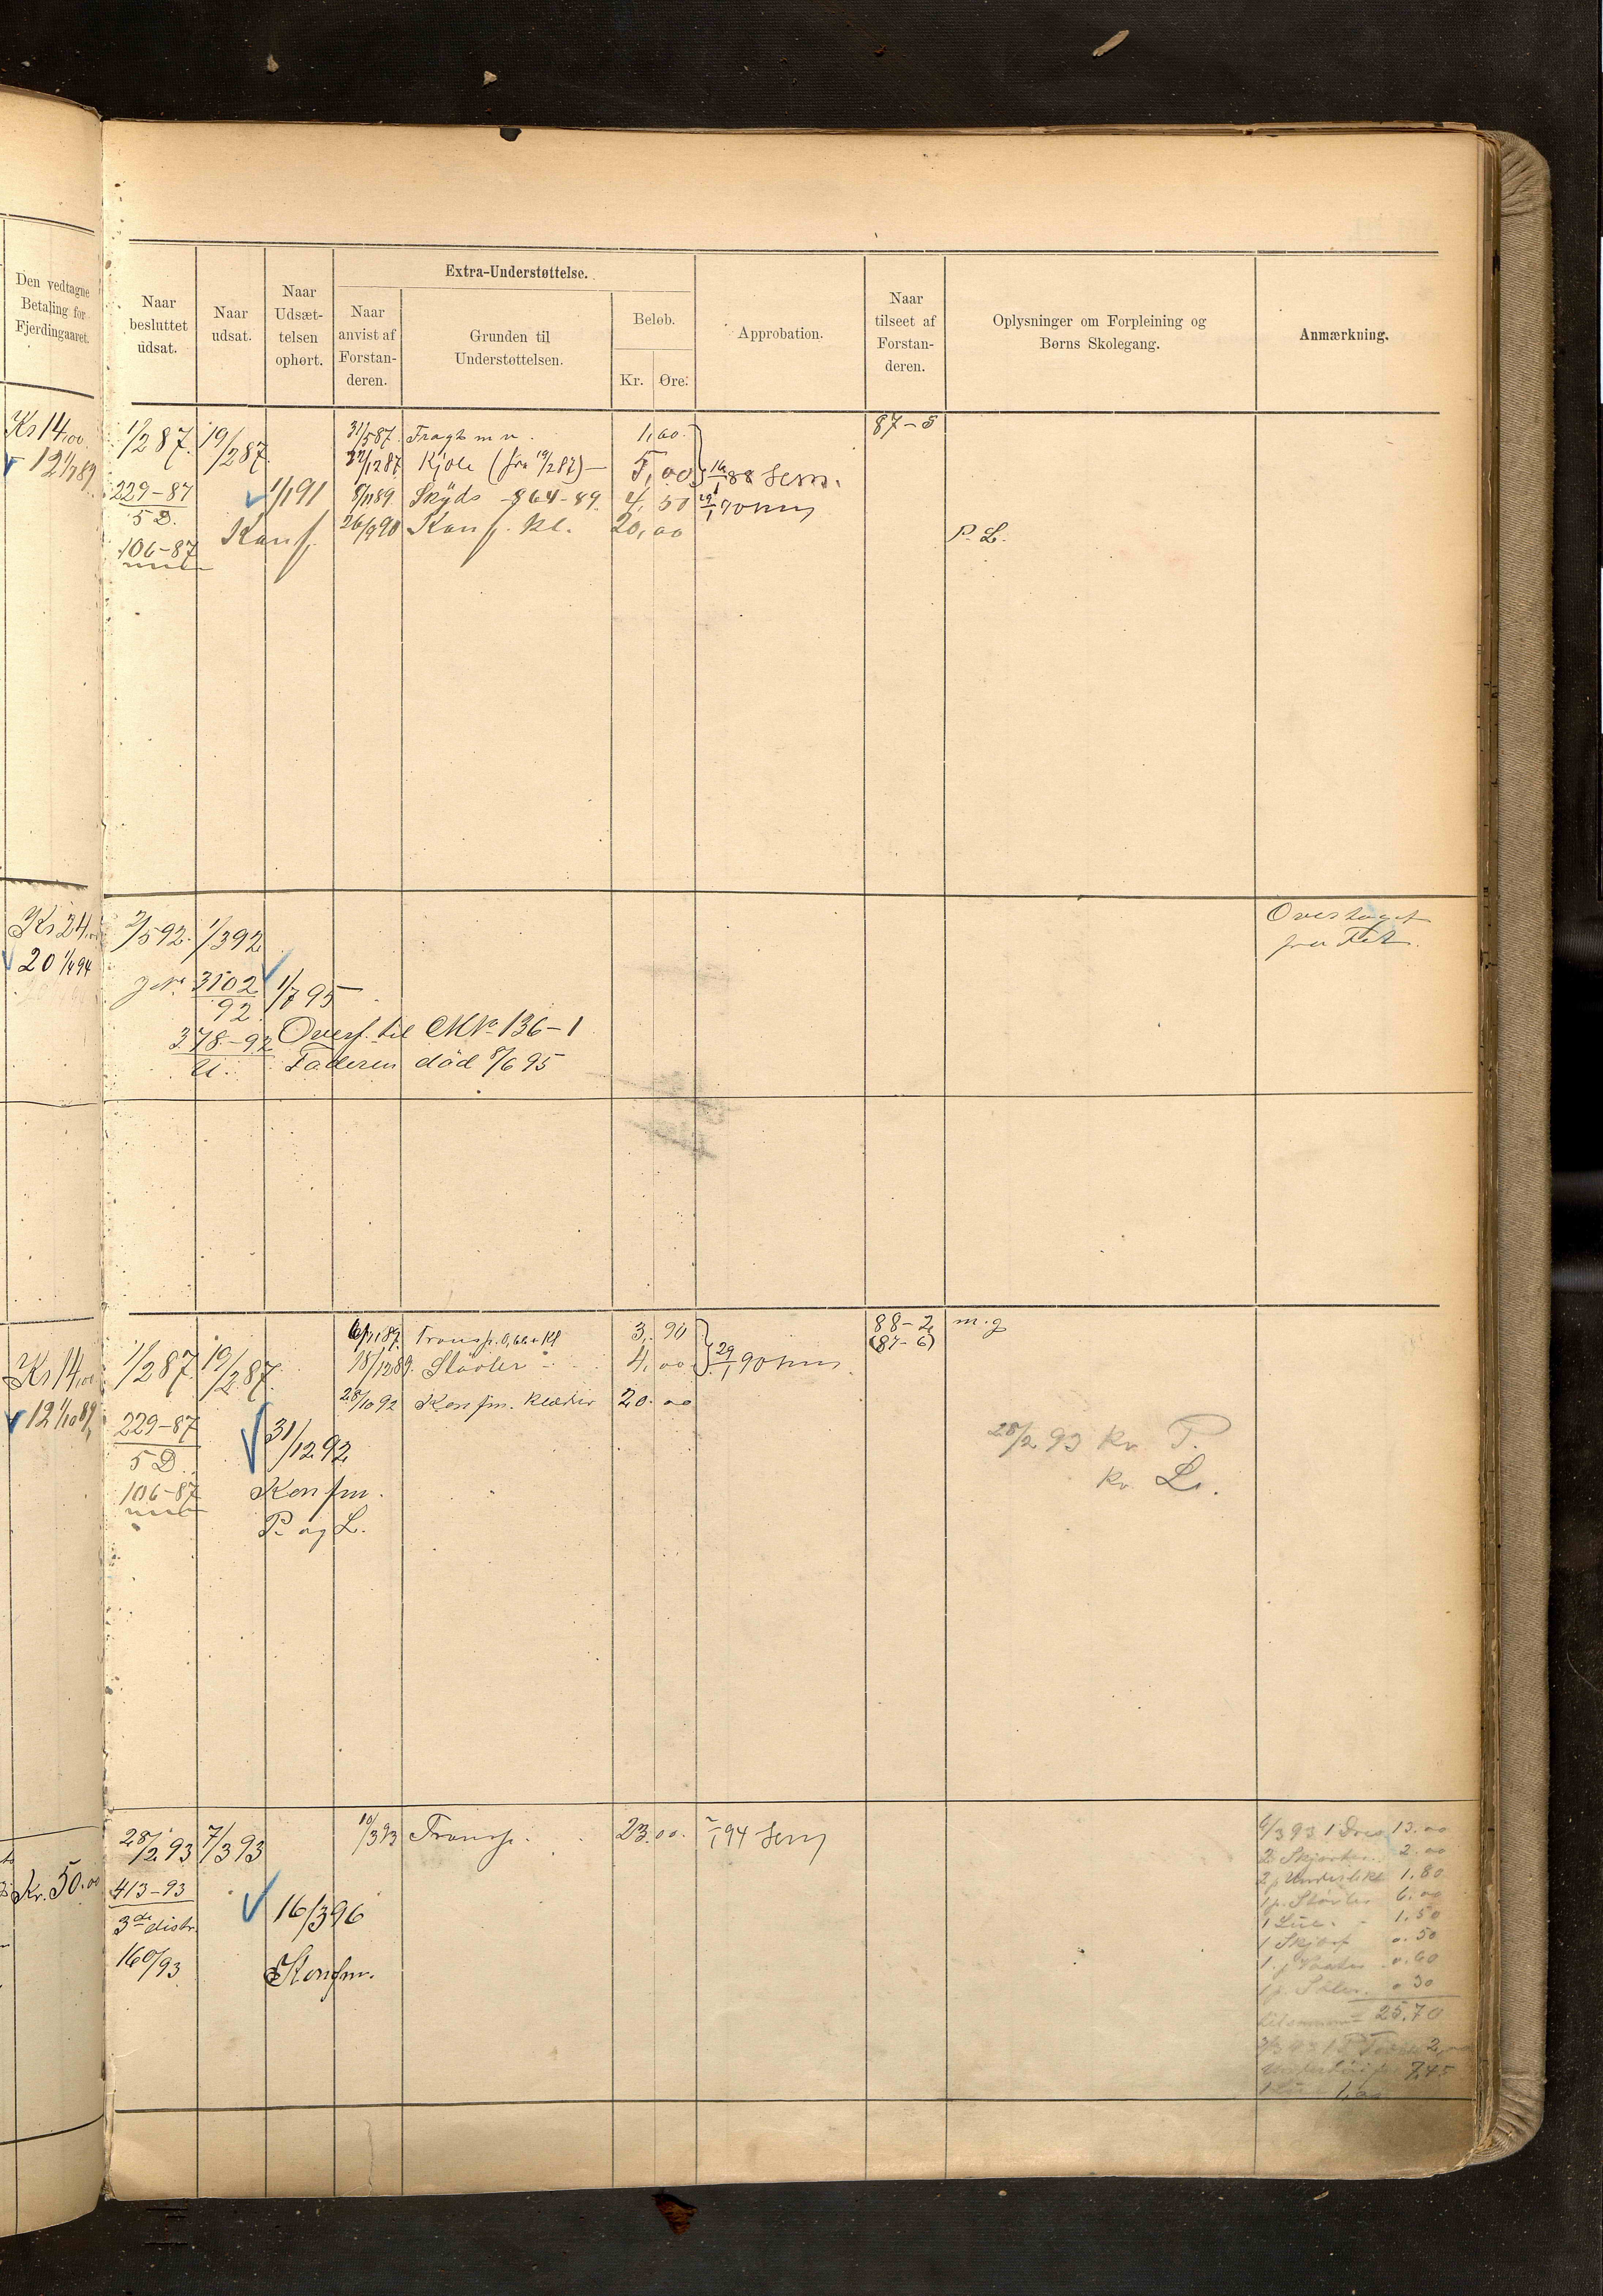 Den vedtagne
Betaling for
Fjerdingaaret.
Naar
besluttet
udsat.
Naar
udsat.
Naar
Udsæt-
telsen
ophørt.
Extra-Understøttelse.
Naar
anvist af
Forstan-
deren.
Grunden til
Understøttelsen.
Beløb.
Kr.
Øre.
Approbation.
Naar
tilseet af
Forstan-
deren.
Oplysninger om Forpleining og
Børns Skolegang.
Anmærkning.
Kr 14,00
12 1/7 89
1/2 87. 19/2 87
229-87
5 D.
106-87
1/1 91
Konf.
31/5 87. Fragt m v. 1,60
Kjole (fra 19/2 87) 5,00
8/11 89 Skyds 864-89. 4,50
26/9 90 Konf. Kl. 20,00
16/1 88
29/1 90
87-5
P. L.
Kr 24,00
20 1/4 94
3/5 92. 1/3 92
3102
92
378-92
1/7 95
Overf. til MNo 136-1
Faderen död 8/6 95
Overtaget
fra Fet.
Kr 14,00
12 1/10 89
1/2 87. 19/2 87.
229-87
5 D.
106-87
31/12 92
Konfm.
P. og L.
Transp. 3,90
18/12 89. Støvler 4,00
28/10 92 Konfm. Klæder 20.00
29/1 90
88-2
(87-6)
m. g
28/2 93 kv. P.
kv. L.
Kr. 50.00
28/2 93 7/3 93
413-93
3de distr.
160/93
16/3 96
Konfm.
10/3 93 Transp. 23.00.
1/94
6/3 93 1 Dres 13.00
2 Skjorter 2.00
1.80
1 p. Støvler 6.00
1 Lue 1.50
1 Skjærf 0.50
0.60
0 30
tilsammen = 25.70
7,45